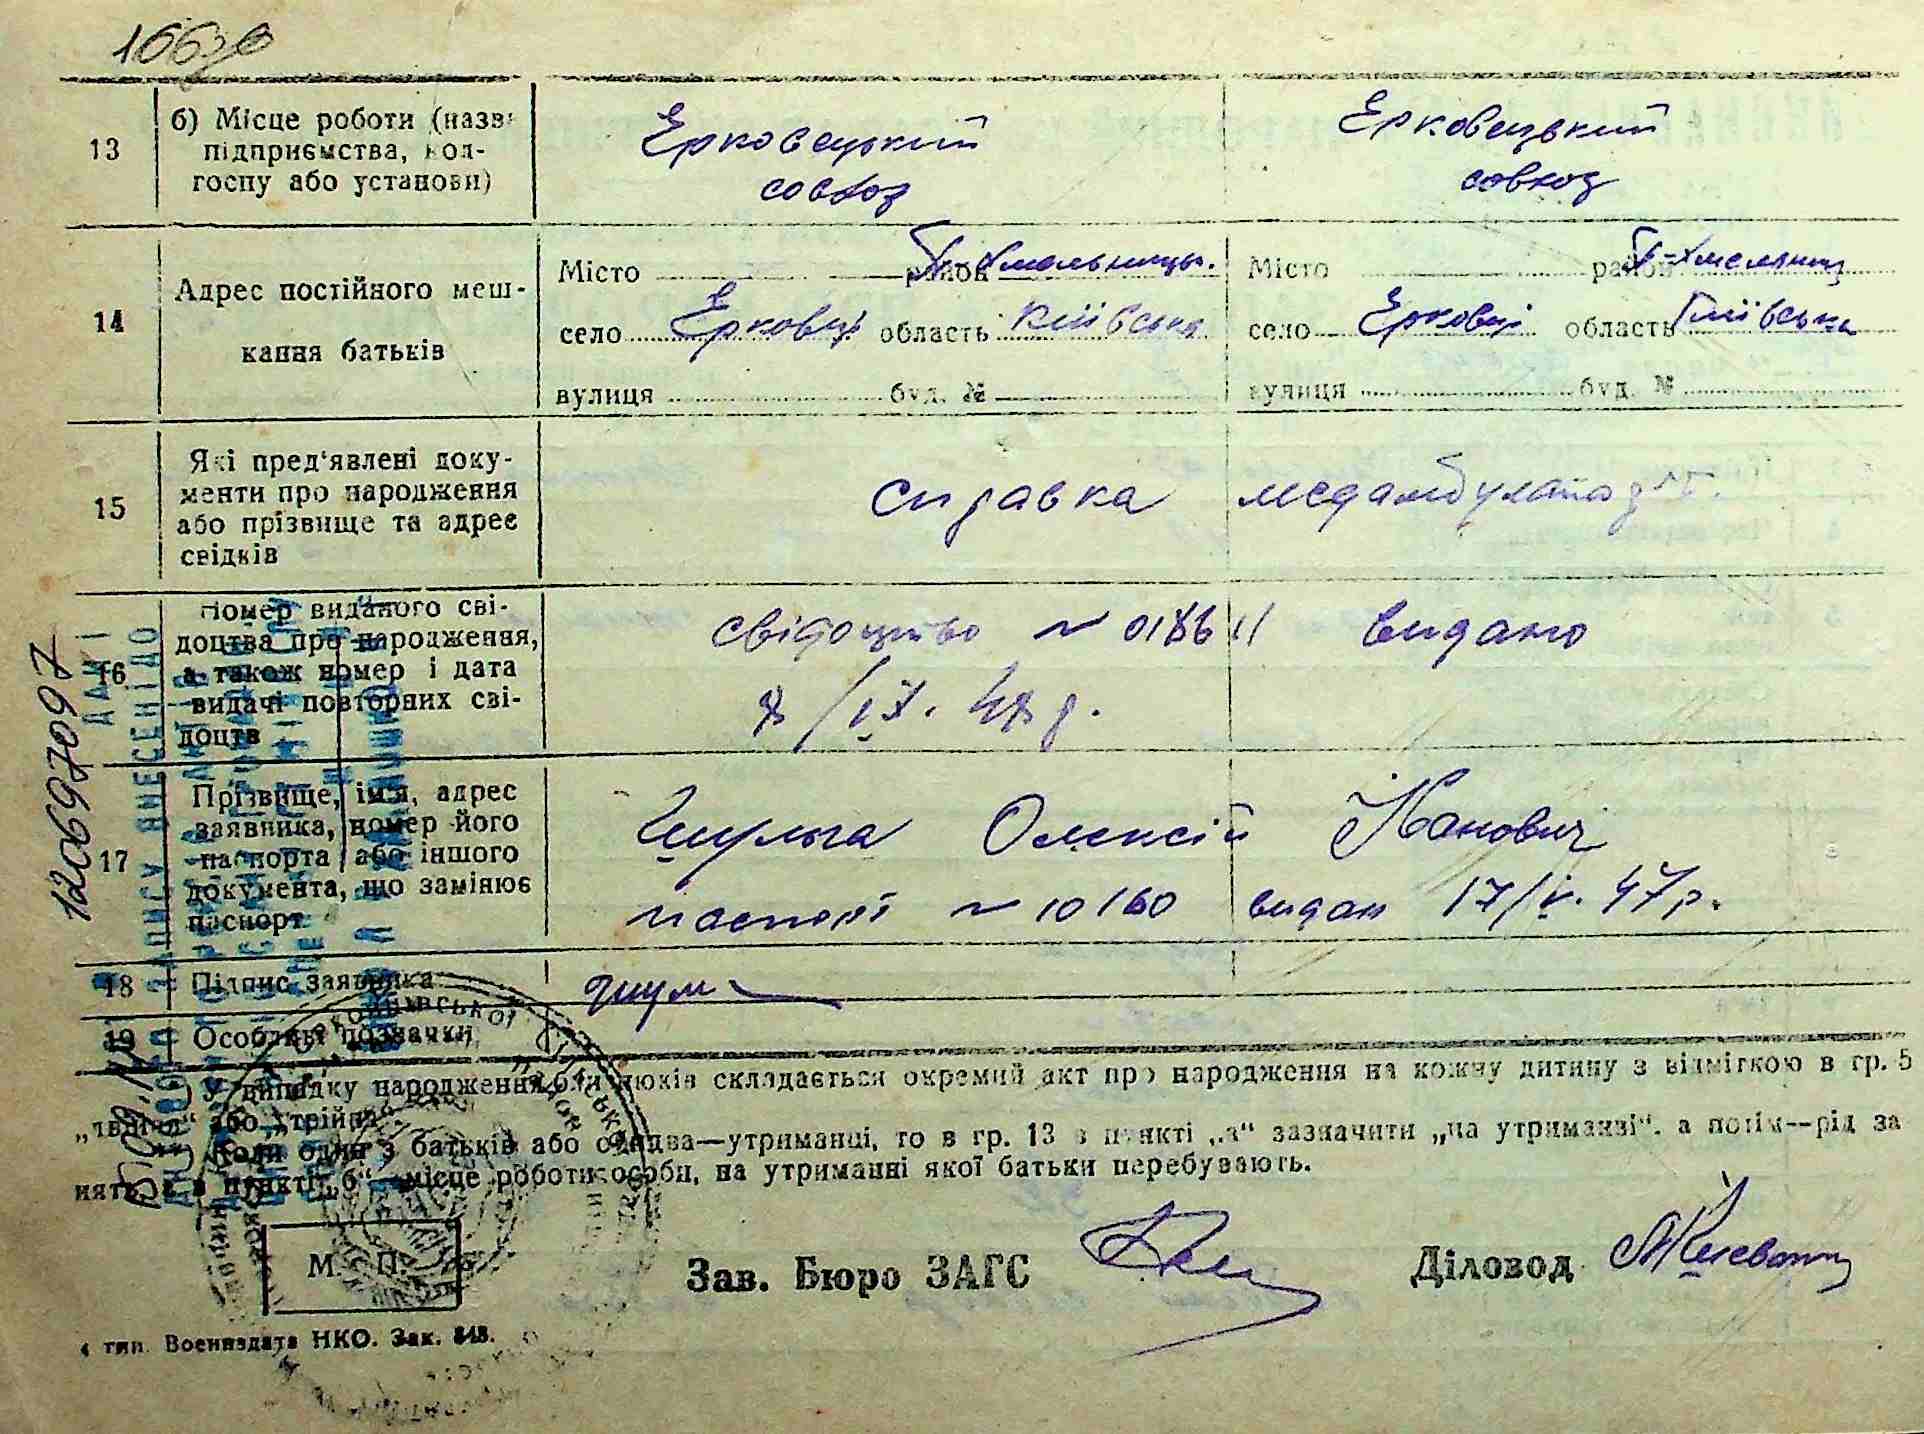 13
б) Місце роботи (назва
підприємства, кол-
госпу або установи)
Ерковецкий
совхоз
Ерковецький
совхоз
14
Адрес постійного меш-
кання батьків
Місто район П-Хмельницьк.
село Ерковці область Київська
вулиця буд. №
Місто район П-Хмельниц
село Ерковці область Київська
вулиця буд. №
15
Які пред'явлені доку-
менти про народження
або прізвище та адрес
свідків
справка медамбулаторії
16
Номер виданого сві-
доцтва про народження,
а також номер і дата
видачі повторних сві-
доцтв
свідоцтво № 018611 видано
17
Прізвище, ім'я, адрес
заявника, номер його
паспорта або іншого
документа, що замінює
паспорт
Олексій Іванович
паспорт № 10160 видан 17/V. 47р.
18
Підпис заявника
19
Особливі позначки
У випадку народження близнюків складається окремий акт про народження на кожну дитину з відміткою в гр. 5
„двійня“ або „трійня“.
Коли один з батьків або обидва—утриманці, то в гр. 13 в пункті „а“ зазначити „на утриманні“, а потім—рід за
нять, а в пункті „б“ місце роботи особи, на утриманні якої батьки перебувають.
М. П.
Зав. Бюро ЗАГС
Діловод
4 тип. Воениздата НКО. Зак. 848.
120697097